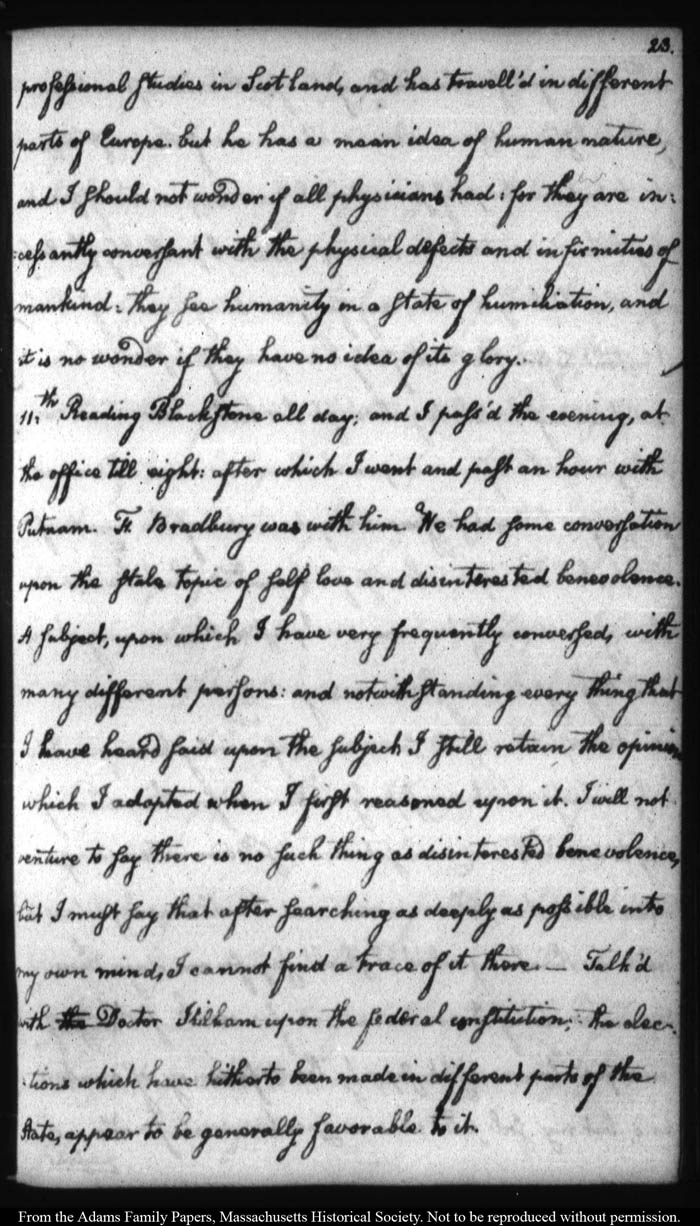 23.
professional studies in Scotland, and has travell'd in different
parts of Europe. but he has a mean idea of human nature,
and I should not wonder if all physicians had: for they are in:
:cessantly conversant with the physical defects and infirmities of
mankind: they see humanity in a state of humiliation, and
it is no wonder if they have no idea of its glory.
11.th Reading Blackstone all day; and I pass'd the evening, at
the office till eight: after which I went and past an hour with
Putnam. F. Bradbury was with him. We had some conversation
upon the stale topic of self love and disinterested benevolence.
A subject, upon which I have very frequently conversed, with
many different persons: and notwithstanding every thing that
I have heard said upon the subject I still retain the opinion
which I adopted when I first reasoned upon it. I will not
venture to say there is no such thing as disinterested benevolence,
but I must say that after searching as deeply as possible into
my own mind, I cannot find a trace of it there. — Talk'd
with the Doctor Kilham upon the federal constitution; the elec:
:tions which have hitherto been made in different parts of the
State, appear to be generally favorable to it.
From the Adams Family Papers, Massachusetts Historical Society. Not to be reproduced without permission.